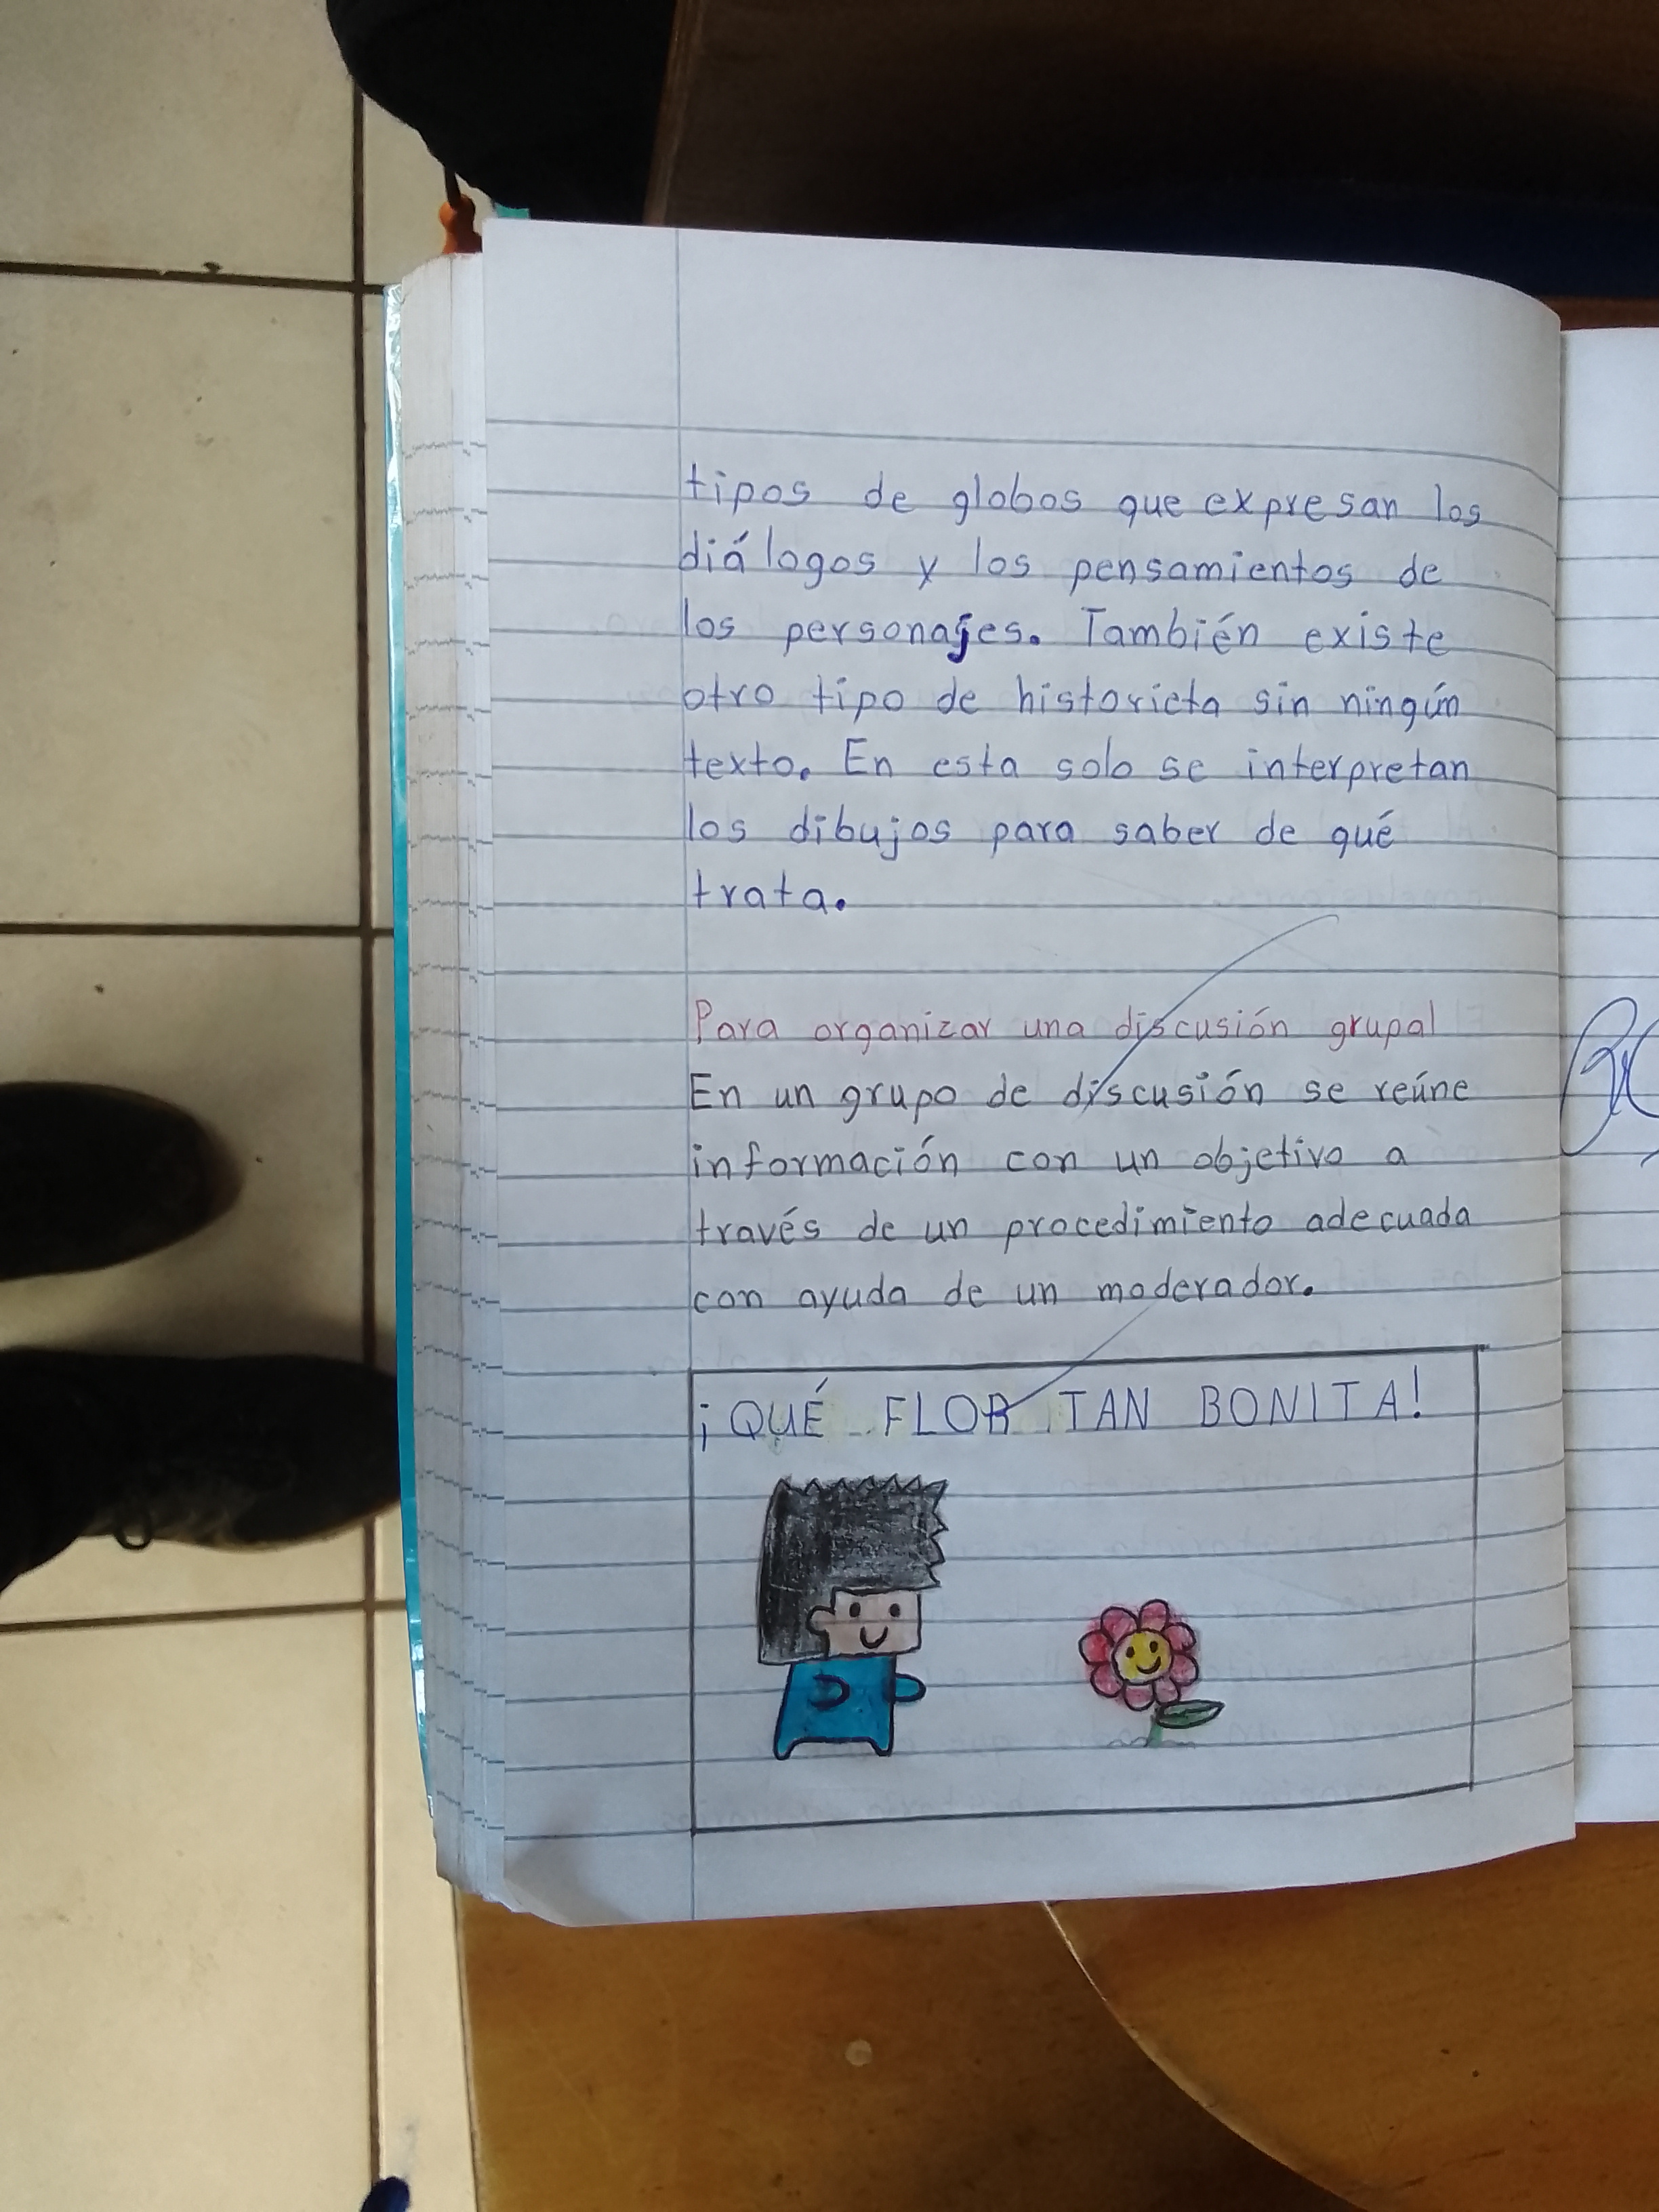 tipos de globos que expresan los
diálogos y los pensamientos de
los personajes. También existe
otro tipo de historieta sin ningún
texto. En esta solo se interpretan
los dibujos para saber de qué
trata.
Para organizar una discusión grupal
En un grupo de discusión se reúne
información con un objetivo a
través de un procedimiento adecuada
con ayuda de un moderador.
¡QUÉ FLOR TAN BONITA!